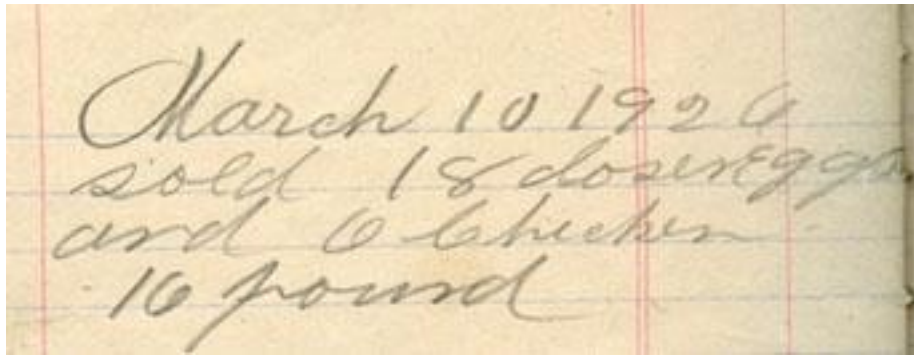 March 10 1926
sold 18 dosen Eggs
and 6 Chicken
16 pound